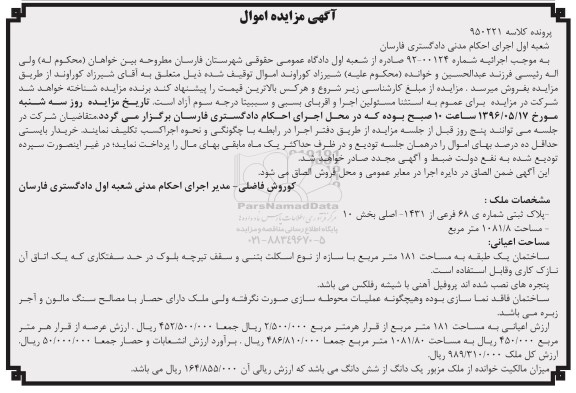 آگهی مزایده اموال
پرونده کلاسه ۹۵۰۲۲۱
شعبه اول اجرای احکام مدنی دادگستری فارسان
به موجب اجرائیه شماره ۰۰۱۲۴-۹۲ صادره از شعبه اول دادگاه عمومی حقوقی شهرستان فارسان مطروحه بین خواهان (محکوم له) ولی
اله رئیسی فرزند عبدالحسین و خوانده (محکوم علیه) شیرزاد کوراوند اموال توقیف شده ذیل متعلق به آقای شیرزاد کوراوند از طریق
مزایده بفروش میرسد . مزایده از مبلغ کارشناسی زیر شروع و هرکس بالاترین قیمت را پیشنهاد کند برنده مزایده شناخته خواهد شد
شرکت در مزایده برای عموم به استثنا مسئولین اجرا و اقربای نسبی و سببیتا درجه سوم آزاد است. تاریخ مزایده روز سه شنبه
مورخ ۱۳۹۶/۰۵/۱۷ ساعت ۱۰ صبح بوده که در محل اجرای احکام دادگستری فارسان برگزار می گردد.متقاضیان شرکت در
جلسه می توانند پنج روز قبل از جلسه مزایده از طریق دفتر اجرا در رابطه با چگونگی و نحوه اجراکسب تکلیف نمایند. خریدار بایستی
حداقل ده درصد بهای اموال را درهمان جلسه تودیع و در ظرف حداکثر یک ماه مابقی بهای مال را پرداخت نماید؛ در غیر اینصورت سپرده
تودیع شده به نفع دولت ضبط و آگهی مجدد صادر خواهد شد.
این آگهی ضمن الصاق در دایره اجرا در معابر عمومی و محل فروش الصاق می شود.
کوروش فاضلی- مدیر اجرای احکام مدنی شعبه اول دادگستری فارسان
مشخصات ملک :
-پلاک ثبتی شماره ی ۶۸ فرعی از ۱۴۳۱- اصلی بخش ۱۰
- مساحت ۱۰۸۱/۸ متر مربع
مساحت اعیانی:
ساختمان یک طبقه به مساحت ۱۸۱ متر مربع با سازه از نوع اسکلت بتنی و سقف تیرچه بلوک در حد سفتکاری که یک اتاق آن
نازک کاری وقابل استفاده است.
پنجره های نصب شده اند پروفیل آهنی با شیشه رفلکس می باشد.
ساختمان فاقد نما سازی بوده وهیچگونه عملیات محوطه سازی صورت نگرفته ولی ملک دارای حصار با مصالح سنگ مالون و آجر
زبره مــی باشد.
ارزش اعیانی به مساحت ۱۸۱ متر مربع از قرار هرمتر مربع ۲/۵۰۰/۰۰۰ ریال جمعا ۴۵۲/۵۰۰/۰۰۰ ریال . ارزش عرصه از قرار هر متر
مربع ۴۵۰/۰۰۰ ریال به مساحت ۱۰۸۱/۸۰ متر مربع جمعا ۴۸۶/۸۱۰/۰۰۰ ریال . برآورد ارزش انشعابات و حصار جمعا ۵۰/۰۰۰/۰۰۰ ریال.
ارزش کل ملک ۹۸۹/۳۱۰/۰۰۰ ریال.
میزان مالکیت خوانده از ملک مزبور یک دانگ از شش دانگ می باشد که ارزش ریالی آن ۱۶۴/۸۵۵/۰۰۰ ریال می باشد.
ParsNamadData
پایگاه اطلاع رسانی مناقصه و مزایده
۰۲۱-۸۸۳۴۹۶۷۰-۵